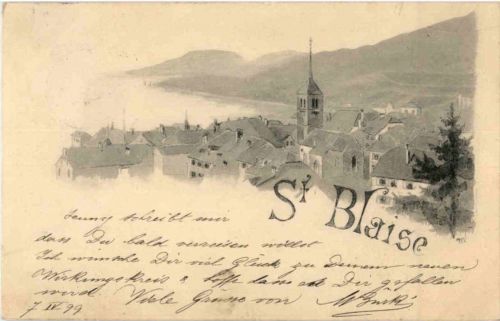 St Blaise
Jenny schreibt mir
dass Du bald verreisen willst
Ich wünsche Dir viel Glück zu Deinem neuen
Wirkungskreis & hoffe dass es Dir gefallen
wird. Viele Grüsse von
7 IV 99